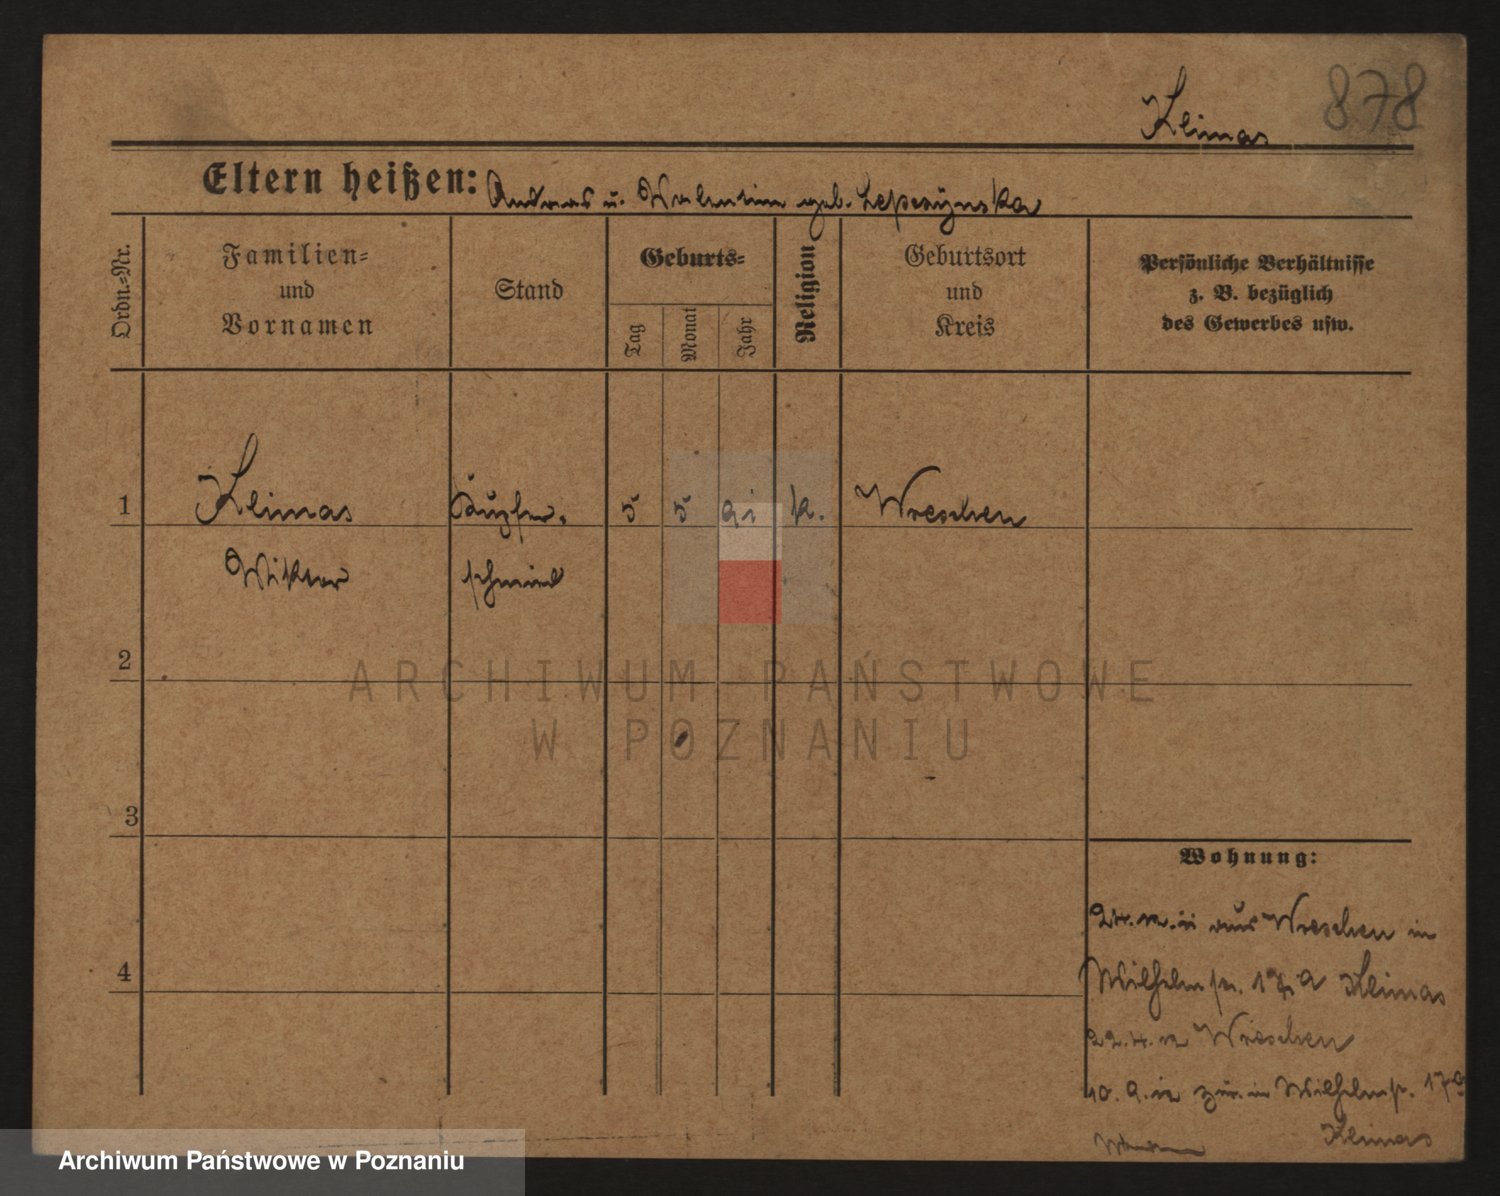 Klimas 878
Eltern heißen: Andreas u. Valentine geb. Lepczynska
Ordn.-Nr.
Familien-
und
Vornamen
Stand
Geburts-
Tag
Monat
Jahr
Religion
Geburtsort
und
Kreis
Persönliche Verhältnisse
z. B. bezüglich
des Gewerbes usw.
1 Klimas Kupfer. 5 5 91 k. Wreschen
Wiktor schmied
2
3
4
Wohnung:
aus Wreschen in
Wilhelmstr. 17a Klimas
22.4.12 Wreschen
10. 9. 12 zur. in Wilhelmstr. 17a
Klimas
ARCHIWUM PAŃSTWOWE
W POZNANIU
Archiwum Państwowe w Poznaniu